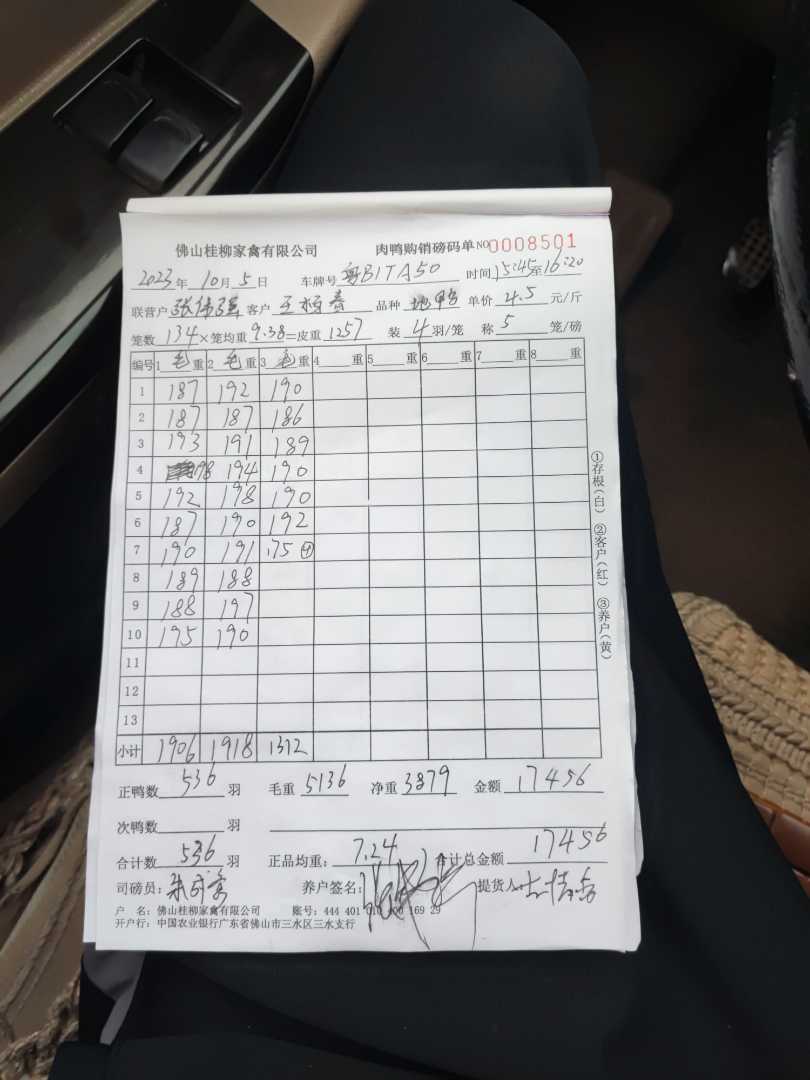 佛山桂柳家禽有限公司 肉鸭购销磅码单 NO 0008501
2023年 10月 5日 车牌号 粤B1TA50 时间 15:45至16:20
联营户 张伟强 客户 品种 地鸭 单价 4.5 元/斤
笼数 134 ×笼均重 9.38 =皮重 1257 装 4 羽/笼 称 5 笼/磅
编号 1 毛 重 2 毛 重 3 毛 重 4 重 5 重 6 重 7 重 8 重
1 187 192 190
2 187 187 186
3 193 191 189
4 198 194 190
5 192 198 190
6 187 190 192
7 190 191 175 ④
8 189 188
9 188 197
10 195 190
11
12
13
小计 1906 1918 1312
正鸭数 536 羽 毛重 5136 净重 3879 金额 17456
次鸭数 羽
合计数 536 羽 正品均重: 7.24 合计总金额 17456
司磅员: 养户签名: 提货人:
户 名: 佛山桂柳家禽有限公司 账号: 444 401 169 29
开户行: 中国农业银行广东省佛山市三水区三水支行
①存根(白) ②客户(红) ③养户(黄)